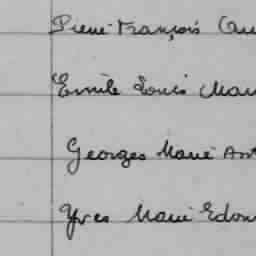 Pierre François
Emile Louis
Georges Marie
Yves Marie